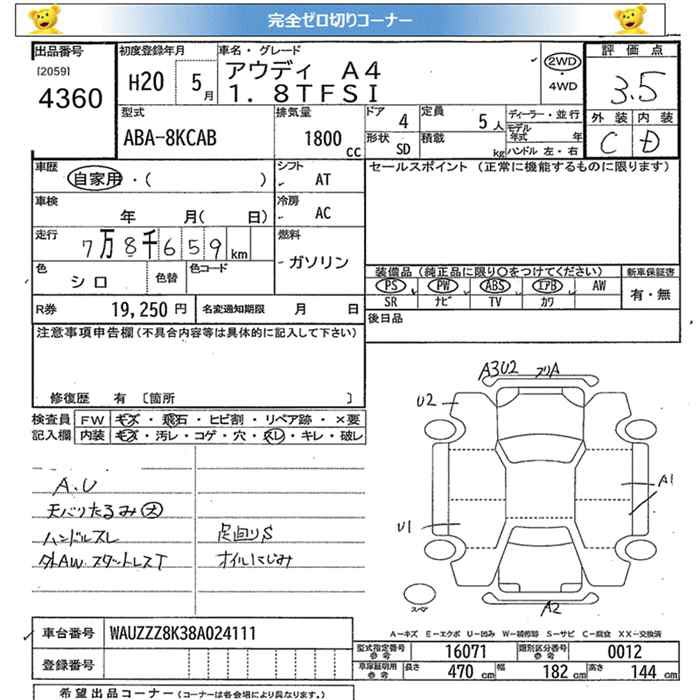 完全ゼロ切りコーナー
出品番号
[2059]
4360
初度登録年月
H20 5月
車名・グレード
アウディ A4
1.8TFSI
2WD
・
4WD
評価点
3.5
外装 内装
C D
型式
ABA-8KCAB
排気量
1800 cc
ドア 4
定員 5人
形状 SD
積載 kg
ディーラー・並行
モデル年式 年
ハンドル 左・右
車歴
自家用・( )
シフト
AT
セールスポイント (正常に機能するものに限ります)
車検
年 月( 日)
冷房
AC
走行
7万8千659km
燃料
ガソリン
色
シロ
色替
色コード
装備品(純正品に限り○をつけてください)
新車保証書
PS PW ABS エアB AW
有・無
SR ナビ TV カワ
R券 19,250円
名変通知期限 月 日
後日品
注意事項申告欄(不具合内容等は具体的に記入して下さい)
修復歴 有 〔箇所 〕
検査員
記入欄
FW キズ・飛石・ヒビ割・リペア跡・×要
内装 キズ・汚レ・コゲ・穴・スレ・キレ・破レ
A.U
天バリたるみ大
ハンドルスレ
外AW スタットレスT
足回りS
オイルにじみ
A3U2
U2
A1
U1
A2
スペア
車台番号 WAUZZZ8K38A024111
登録番号
A-キズ E-エクボ U-凹み W-補修跡 S-サビ C-腐食 XX-交換済
型式指定番号 参考 16071
類別区分番号 参考 0012
車庫証明用 参考 長さ 470cm 幅 182cm 高さ 144cm
希望出品コーナー(コーナーは各会場により異なります。)